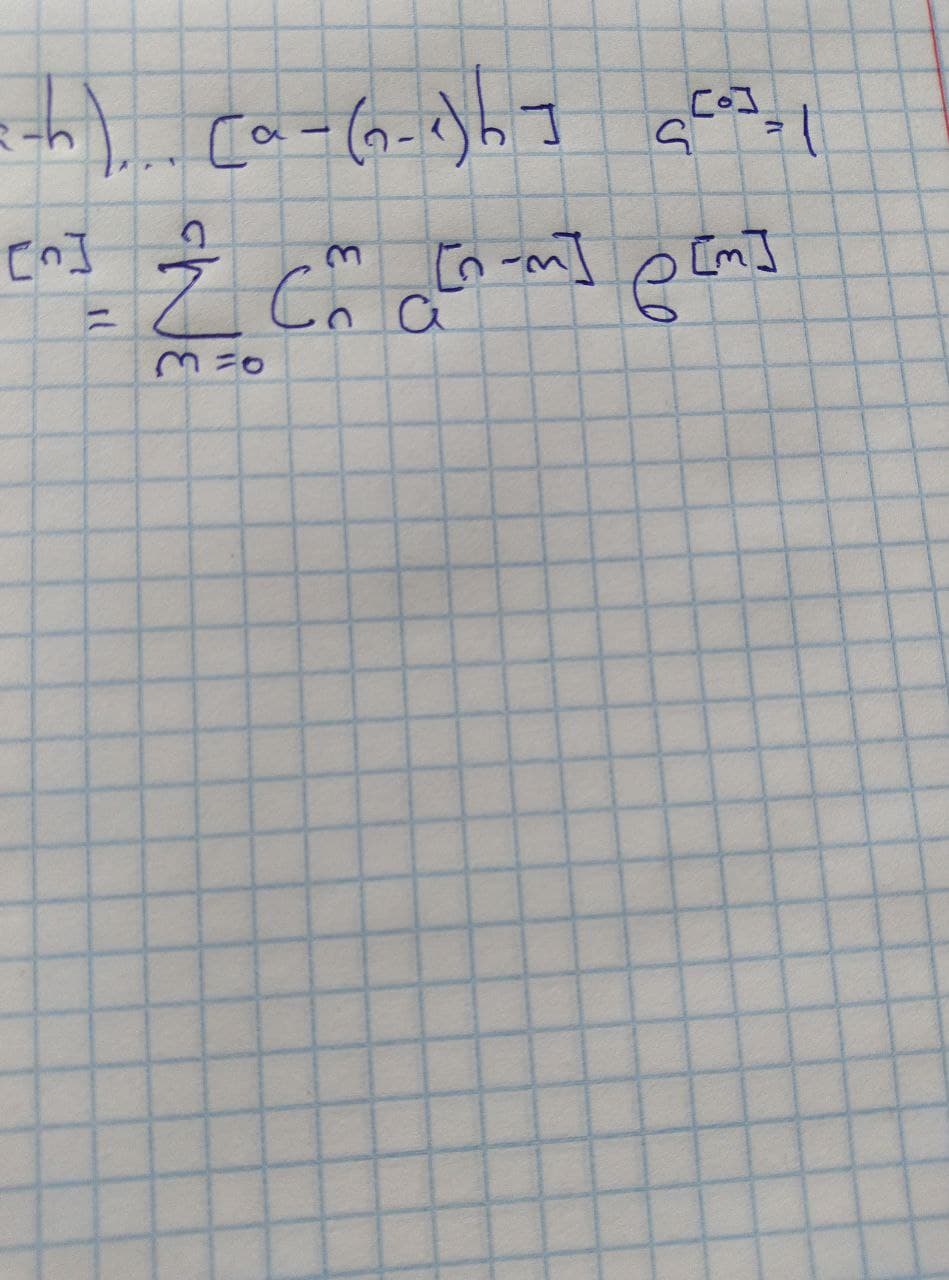 -h)... [a-(n-1)h] a^[0]=1
[n] = n∑m=0 C_n^m a^[n-m] b^[m]